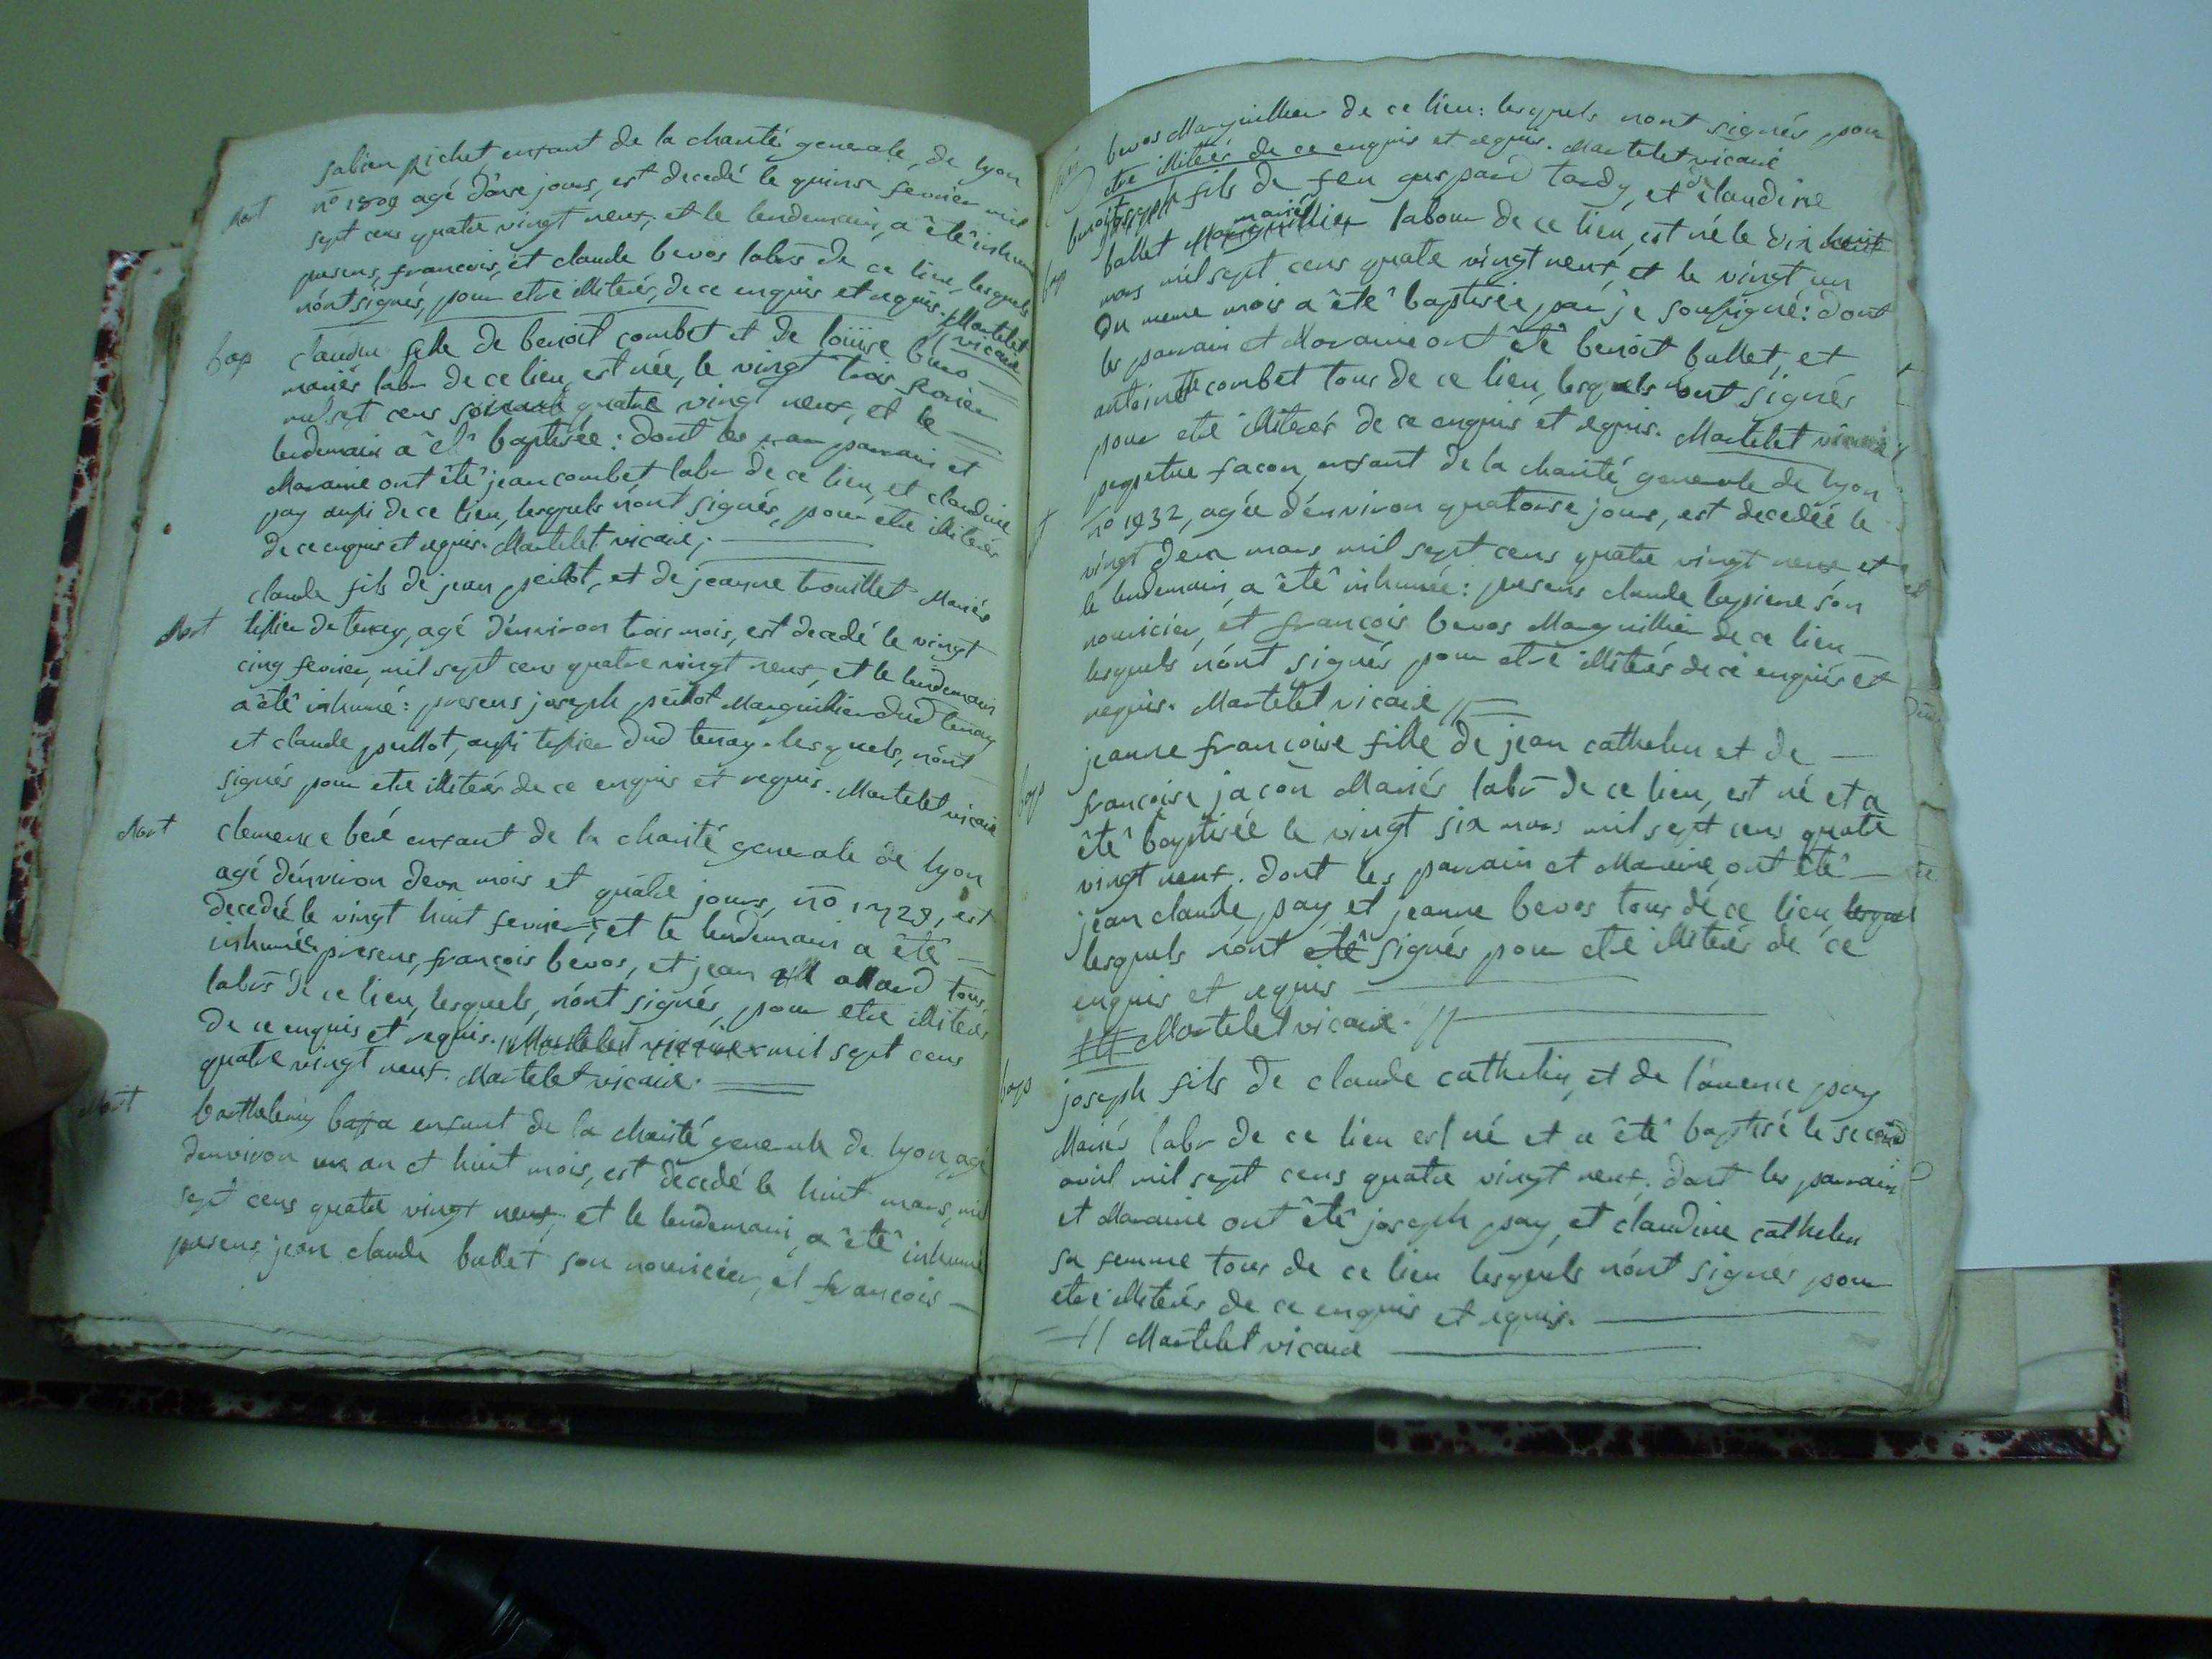 fabien pichet enfant de la charité generale, de lyon
Mort
no 1809 agé d'onse jours, est decedé le quinse fevrier mil
sept cens quatre vingt neuf, et le lendemain, a êtê inhumé
presens, francois, et claude bevos labrs de ce lieu, lesquels
nónt signés, pour etre illiterés, de ce enquis et requis. Martelet
vicaire
bap
claudine fille de benoit combet et de loüise
mariés labr de ce lieu, est née, le vingt trois fevrier
mil sept cens quatre vingt neuf, et le
lendemain a êtê baptisée: dont les parrain et
Maraine ont êtê jean combet labr de ce lieu, et claudine
pay aussi de ce lieu, lesquels nónt signés, pour etre illiterés
de ce enquis et requis. Martelet vicaire,.
claude fils de jean peilot, et de jeanne trouillet Mariés
Mort
tissier de tenay, agé dénviron trois mois, est decedé le vingt
cinq fevrier, mil sept cens quatre vingt neuf, et le lendemain
a êtê inhumé: presens joseph peillot Marguillier dud tenay
et claude peillot, aussi tissier dud tenay. lesquels, nónt
signés pour etre illiterés de ce enquis et requis. Martelet vicaire
Mort
clemence beré enfant de la charité generale de lyon
agé dénviron deux mois et quatre jours, no 1729, est
decedeé le vingt huit fevrier, et le lendemain a êtê
inhumée presens, françois bevos, et jean allard tous
labrs de ce lieu, lesquels, nónt signés, pour etre illiterés
de ce enquis et requis. Martelet vicaire mil sept cens
quatre vingt neuf. Martelet vicaire.
Mort
barthelemy enfant de la charité generale de lyon, agé
dénviron un an et huit mois, est decedé le huit mars, mil
sept cens quatre vingt neuf, et le lendemain, a êtê inhumé
presens, jean claude ballet son nouricier, et françois
bevos Marguillier de ce lieu: lesquels nont signés pour
etre illiterés de ce enquis et requis. Martelet vicaire
benoit joseph fils de feu gaspard tardy, et de claudine
mariés
bap
ballet Marguillier labour de ce lieu, est né le dix huit
mars mil sept cens quatre vingt neuf, et le vingt un
du meme mois a êtê baptisée, par je soussigné: dont
les parrain et Maraine ont êtê benoit ballet, et
antoinette combet tous de ce lieu, lesquels nont signés
pour etre illiterés de ce enquis et requis. Martelet vicaire
perpetue facon, enfant de la charité generale de lyon
no 1932, agée dénviron quatorse jours, est decedée le
vingt deux mars mil sept cens quatre vingt neuf et
le lendemain, a êtê inhumée: presens claude lapierre son
nouricier, et françois bevos Marguillier de ce lieu
lesquels nónt signés pour etre illiterés de ce enquis et
requis. Martelet vicaire
jeanne françoise fille de jean cathelin et de
bap
françoise jacon Mariés labr de ce lieu, est né et a
êtê baptisée le vingt six mars mil sept cens quatre
vingt neuf. dont les parrain et Maraine ont êtê
jean claude, pay, et jeanne bevos tous de ce lieu, lesquel
lesquels nont êtê signés pour etre illiterés de ce
enquis et requis
Martelet vicaire.
bap
joseph fils de claude cathelin, et de laurence pay
Mariés labr de ce lieu est né et a êtê baptisé le second
avril mil sept cens quatre vingt neuf. dont les parrain
et Maraine ont êtê joseph pay, et claudine cathelin
sa femme tous de ce lieu lesquels nónt signés pour
etre illiterés de ce enquis et requis.
Martelet vicaire